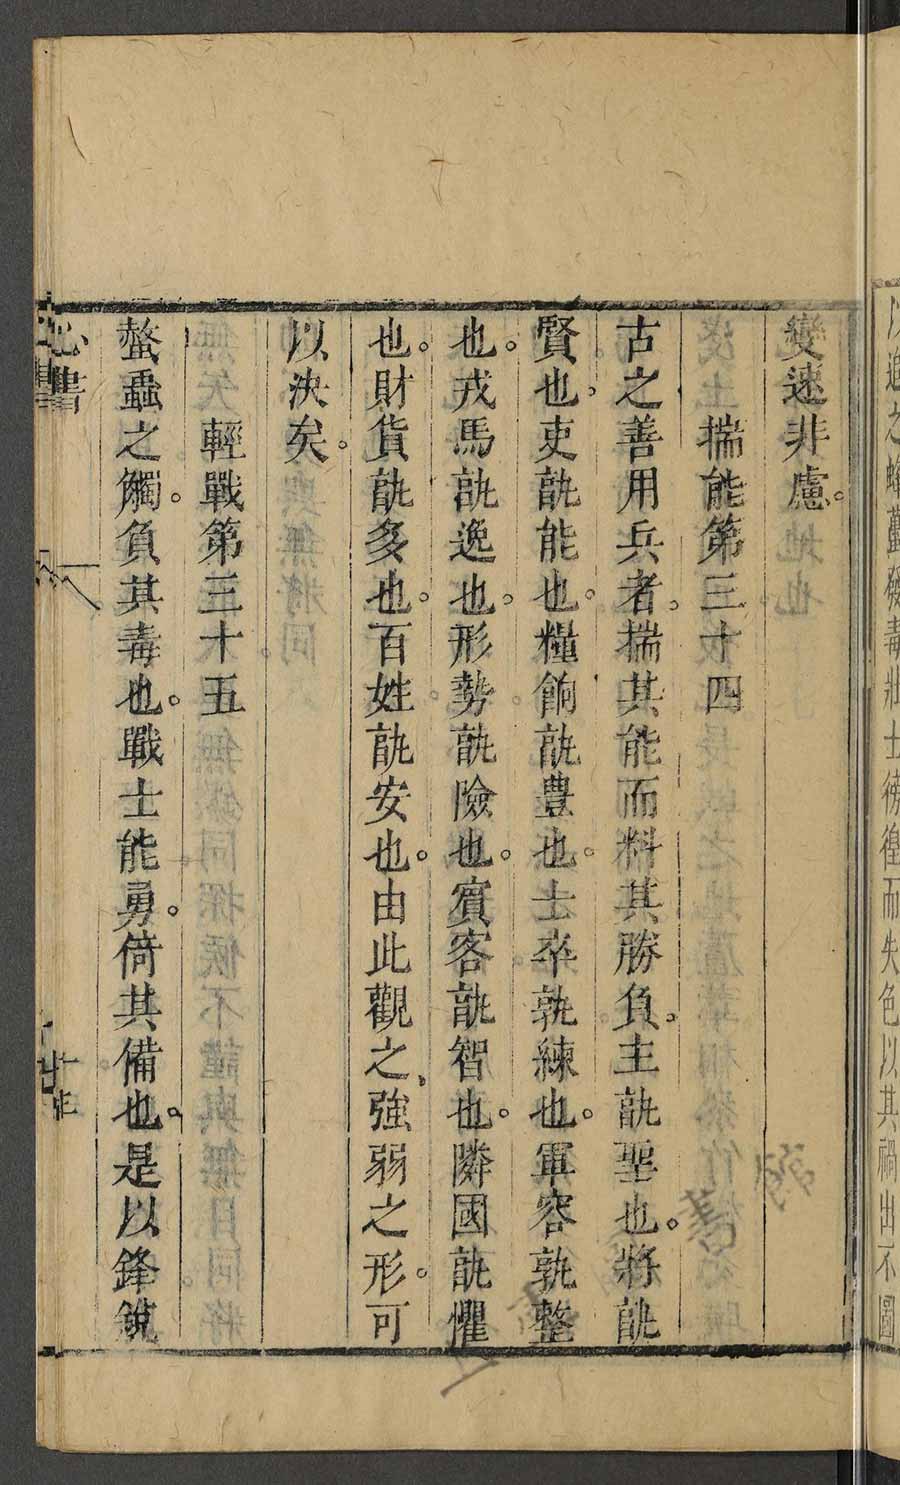 以追之蜂蠆發毒壯士徬徨而失色以其禍出不圖
變速非慮。
揣能第三十四
古之善用兵者。揣其能而料其勝負。主孰聖也。將孰
賢也。吏孰能也。糧餉孰豊也。士卒孰練也。軍容孰整
也。戎馬孰逸也。形勢孰險也。賓客孰智也。隣國孰懼
也。財貨孰多也。百姓孰安也。由此觀之、強弱之形。可
以決矣。
輕戰第三十五
螫蟲之觸。負其毒也。戰士能勇。倚其備也。是以鋒銳
心書